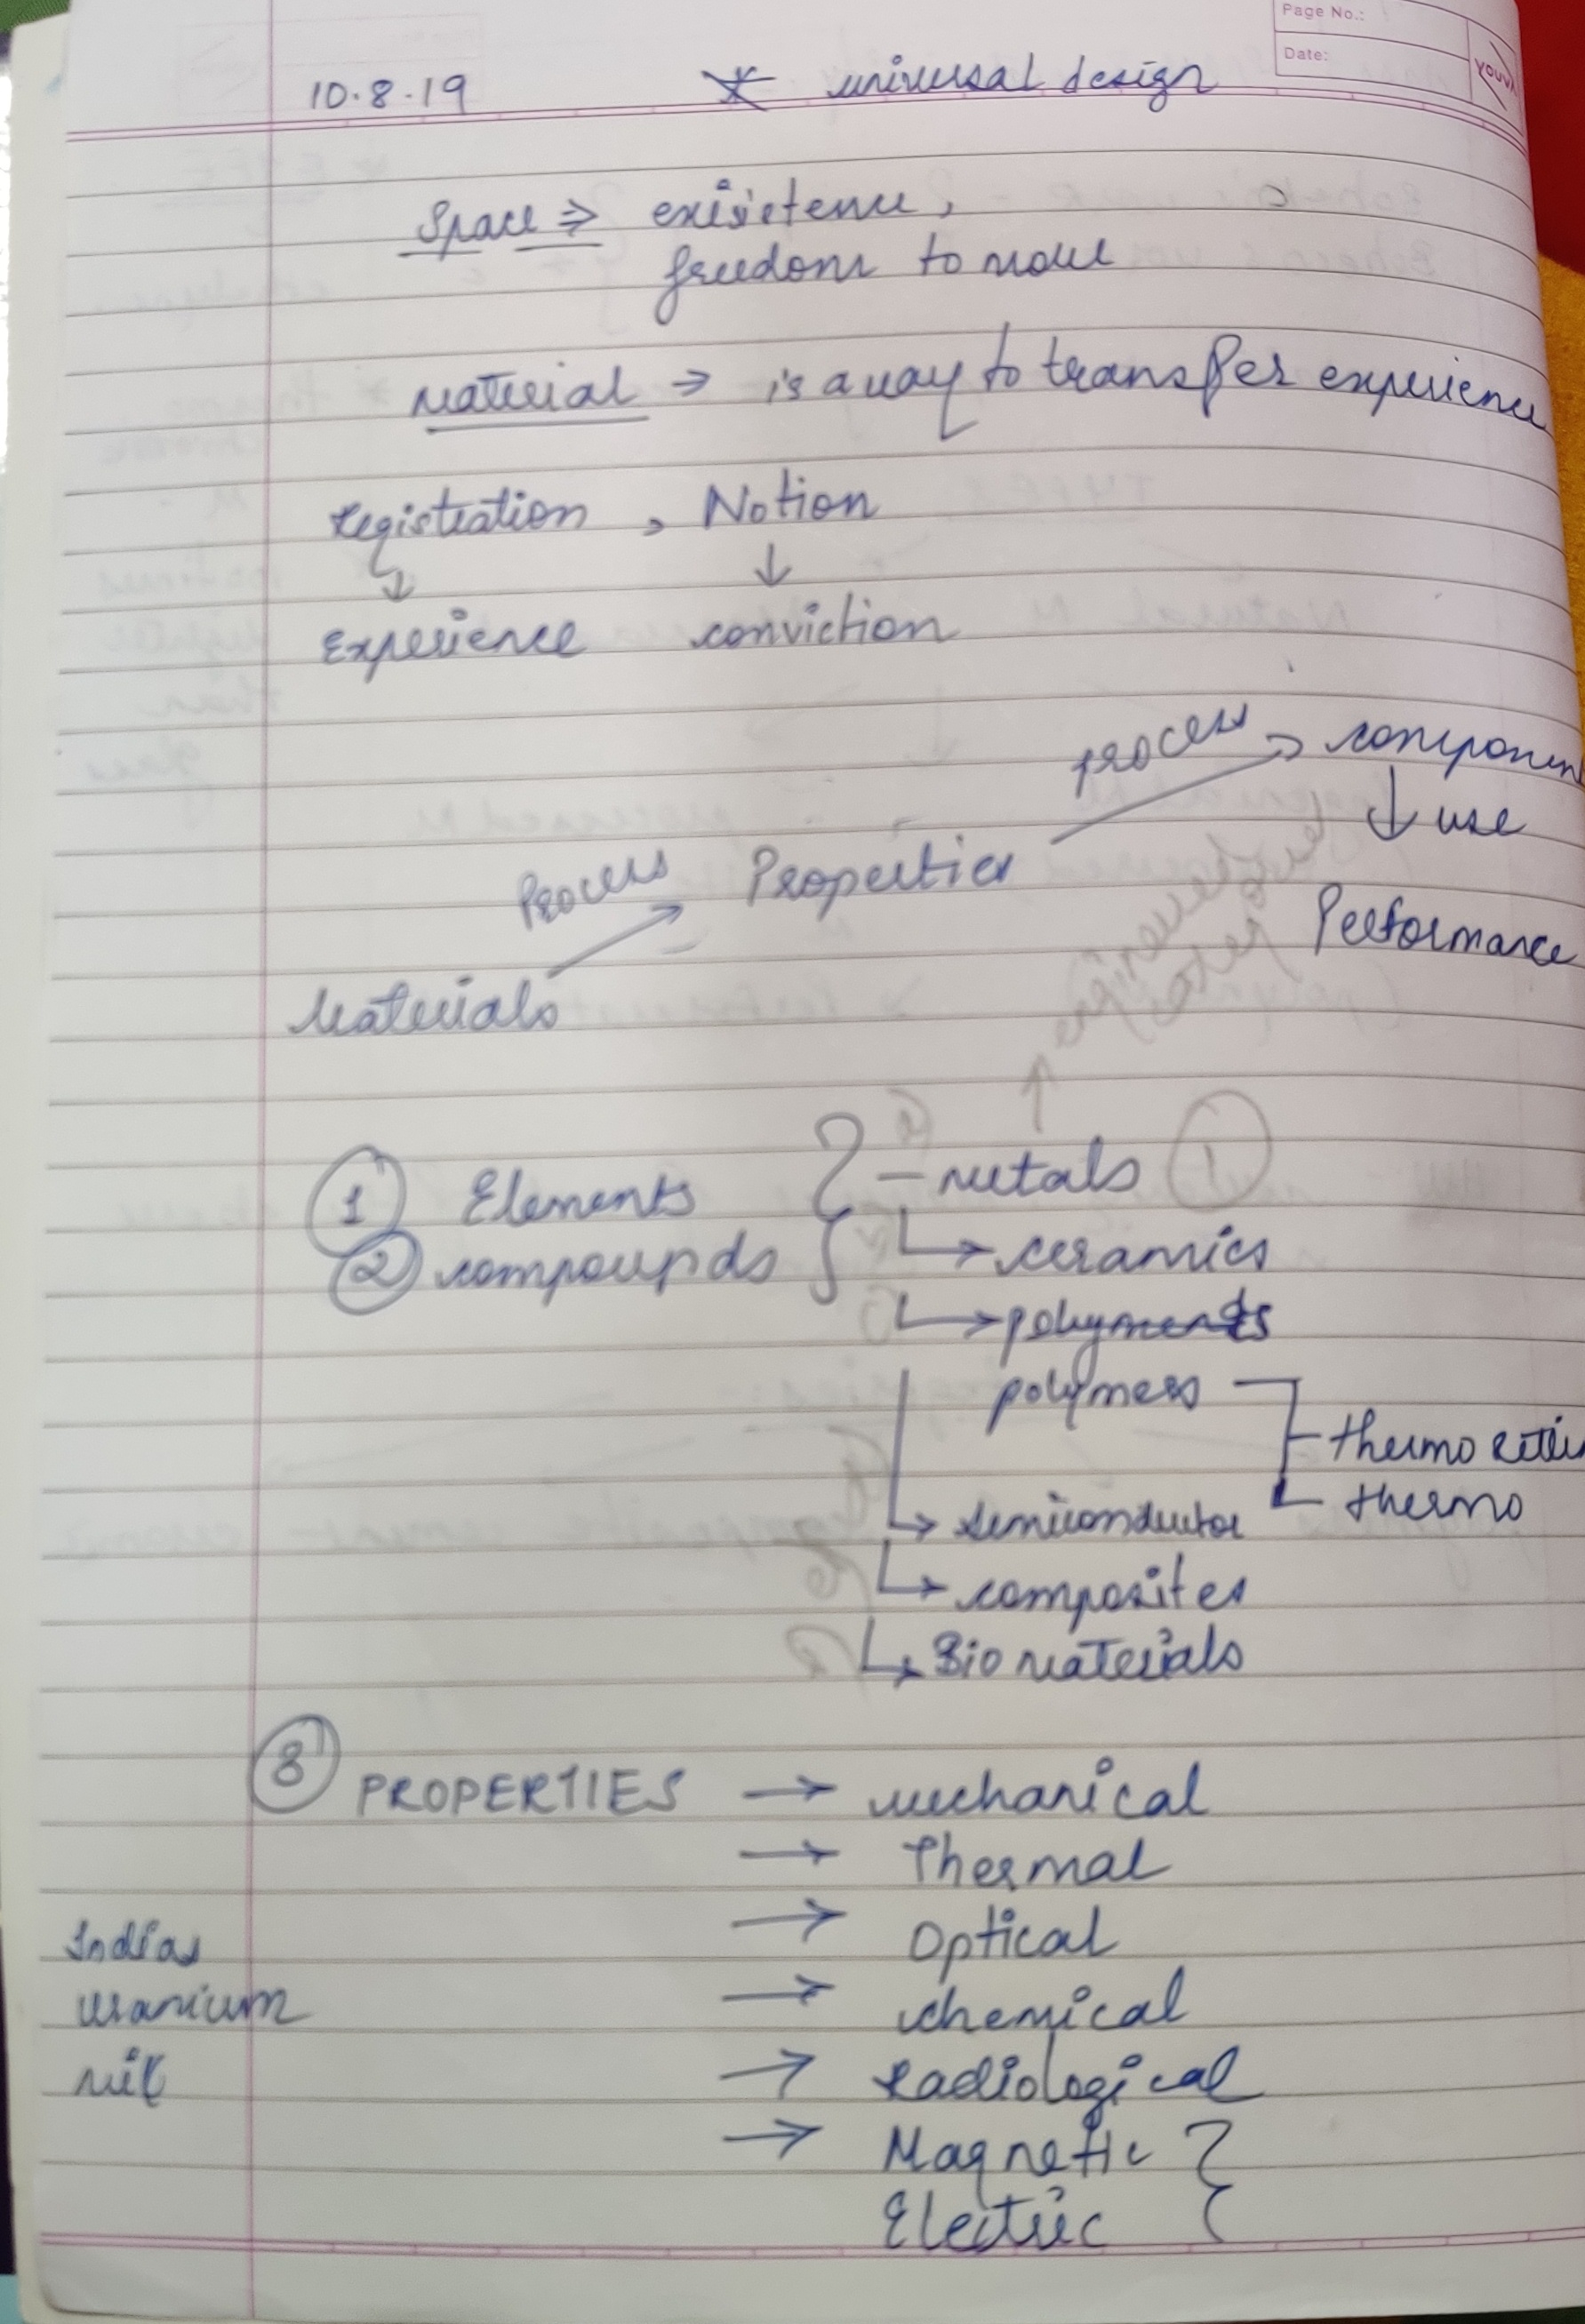 Page No.:
Date:
YOUVA
10.8.19 * universal design
Space ⇒ existence,
freedom to move
Material → is a way to transfer experience
Registration, Notion
↓ ↓
Experience conviction
process → componen
↓ use
Process → Properties
Performance
Materials
① Elements { – metals ①
② compounds → ceramics
→ polyments
polymers
thermo settin
thermo
→ semiconductor
→ composites
→ Bio materials
⑧ PROPERTIES → mechanical
→ Thermal
→ Optical
Indias
→ chemical
uranium
→ Radiological
→ Magnetic }
Electric